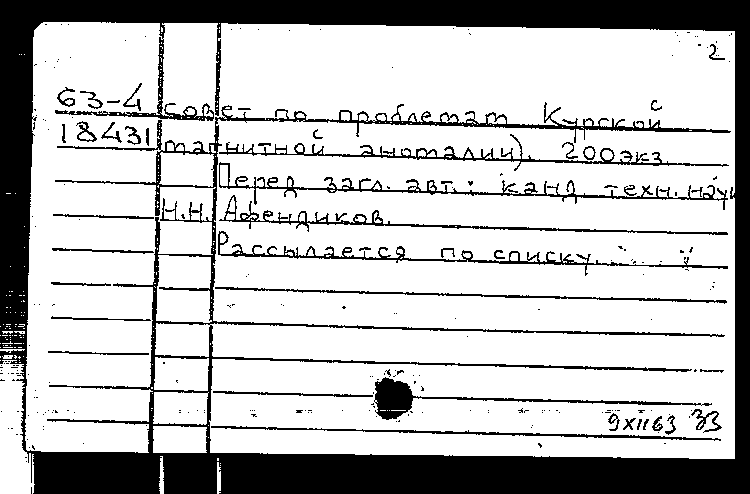 2
63-4 совет по проблемам Курской
18431 магнитной аномалии). 200экз.
Перед загл. авт.: канд техн. наук
Н.Н. Афендиков.
Рассылается по списку.
9XII63 ЗЗ